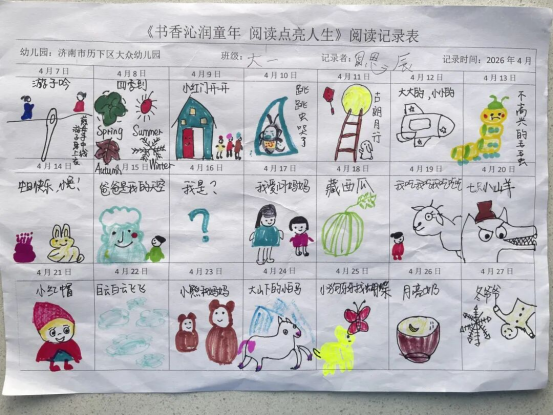 《书香沁润童年 阅读点亮人生》阅读记录表
幼儿园：济南市历下区大众幼儿园 班级：大一 记录者：思辰 记录时间：2026年4月
4月7日 4月8日 4月9日 4月10日 4月11日 4月12日 4月13日
游子吟
四季到
Spring
Summer
Autumn
Winter
小红门开开
跳跳虫哭了
古朗月行
大大的，小小的
不高兴的毛毛虫
4月14日 4月15日 4月16日 4月17日 4月18日 4月19日 4月20日
生日快乐，小兔！
爸爸是我的天空
我是？
我爱问妈妈
藏西瓜
七只小山羊
4月21日 4月22日 4月23日 4月24日 4月25日 4月26日 4月27日
小红帽
白云白云飞飞
小熊和妈妈
大山下的小白马
月亮奶
冬爷爷